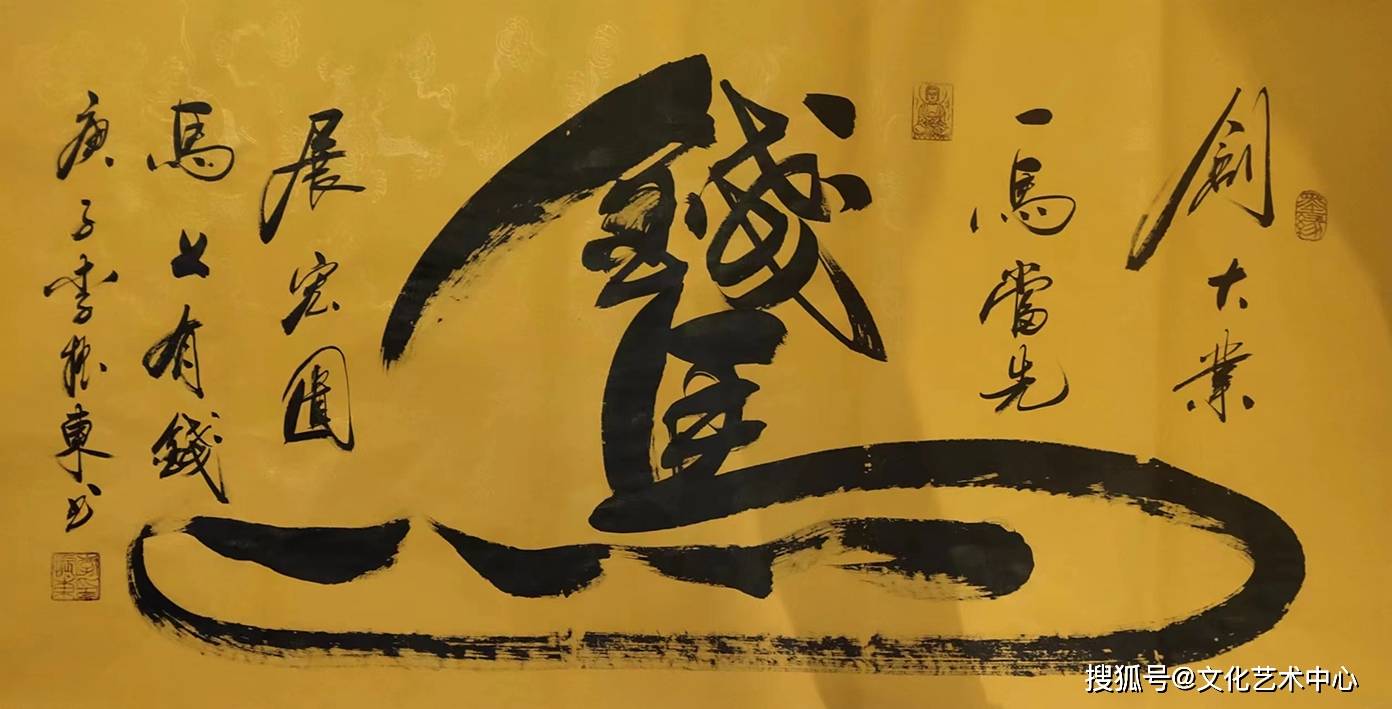 創大業
一馬當先
錢馬
展宏圖
馬上有錢
庚子李東书
搜狐号@文化艺术中心